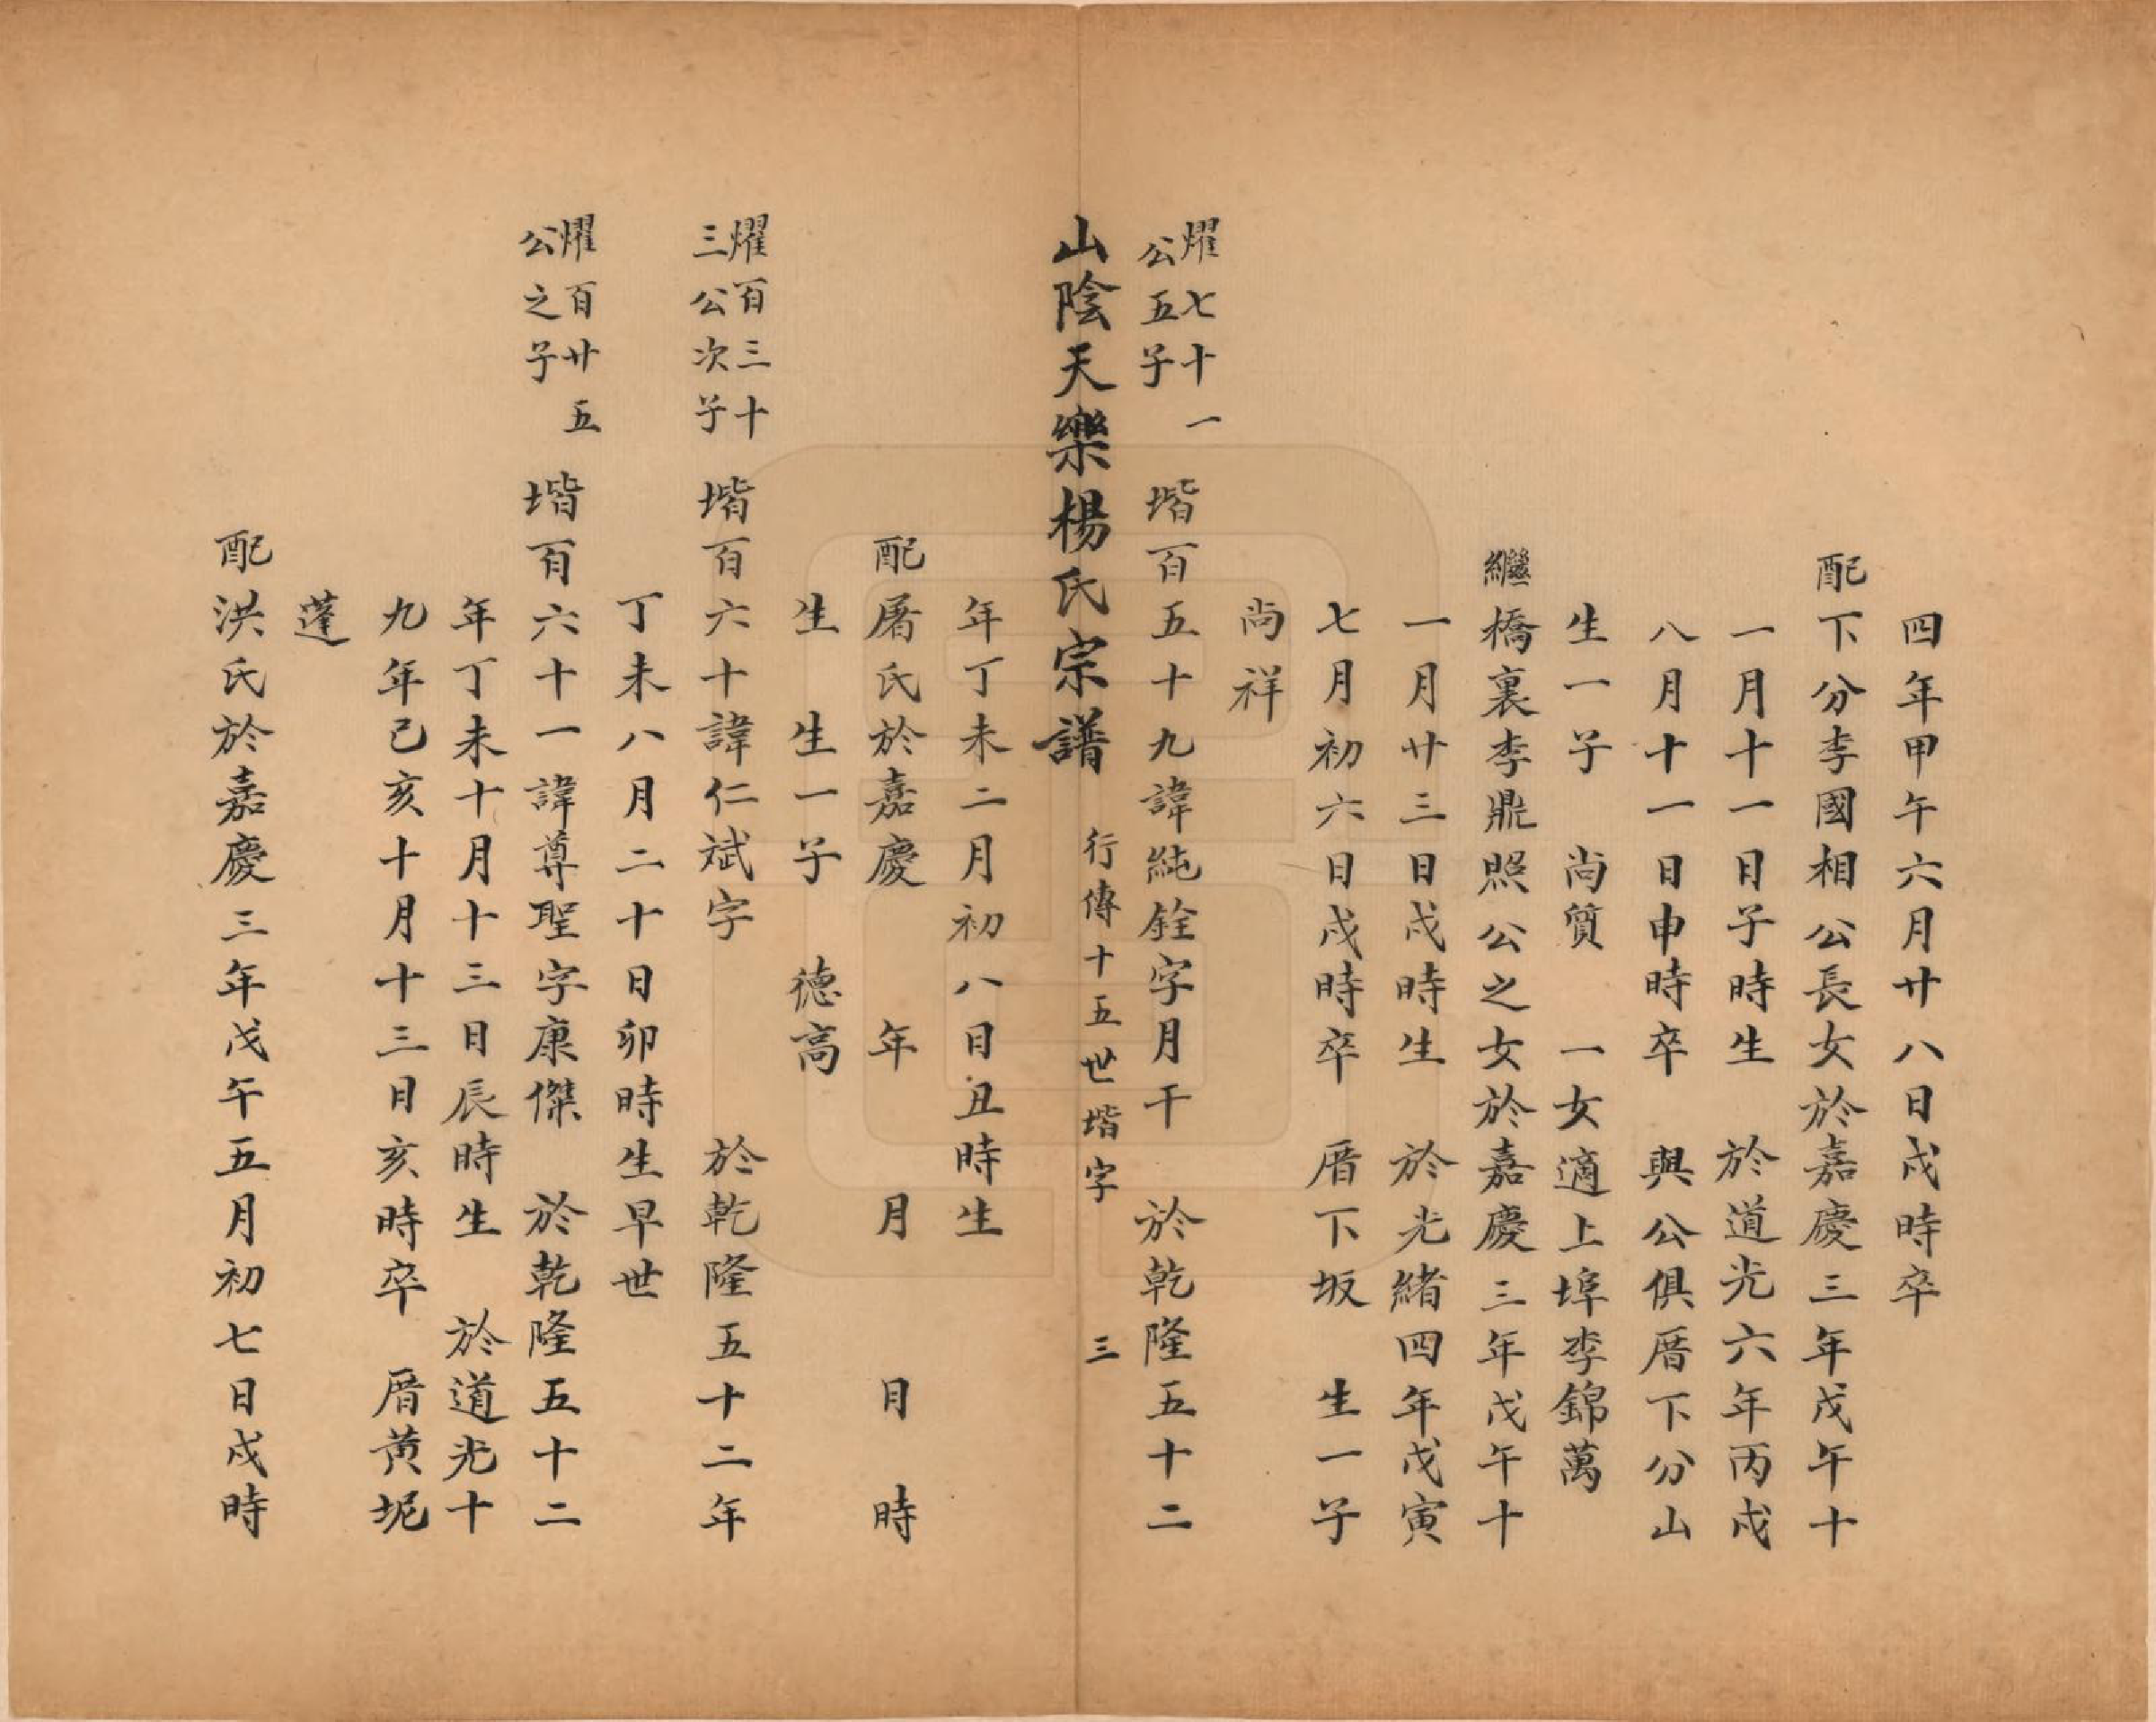 四年甲午六月廿八日戌時卒
配下分李國相公長女於嘉慶三年戊午十
一月十一日子時生 於道光六年丙戌
八月十一日申時卒 與公俱厝下分山
生一子 尚質 一女適上埠李錦萬
繼橋裏李鼎照公之女於嘉慶三年戊午十
一月廿三日戌時生 於光緒四年戊寅
七月初六日戌時卒 厝下坂 生一子
尚祥
燿七十一
公五子
堦百五十九諱純銓字月干 於乾隆五十二
山陰天樂楊氏宗譜 行傳十五世堦字 三
年丁未二月初八日丑時生
配屠氏於嘉慶 年 月 日 時
生 生一子 德高
燿百三十
三公次子
堦百六十諱仁斌字 於乾隆五十二年
丁未八月二十日卯時生早世
燿百廿五
公之子
堦百六十一諱尊聖字康傑 於乾隆五十二
年丁未十月十三日辰時生 於道光十
九年己亥十月十三日亥時卒 厝黄坭
蓬
配洪氏於嘉慶三年戊午五月初七日戌時